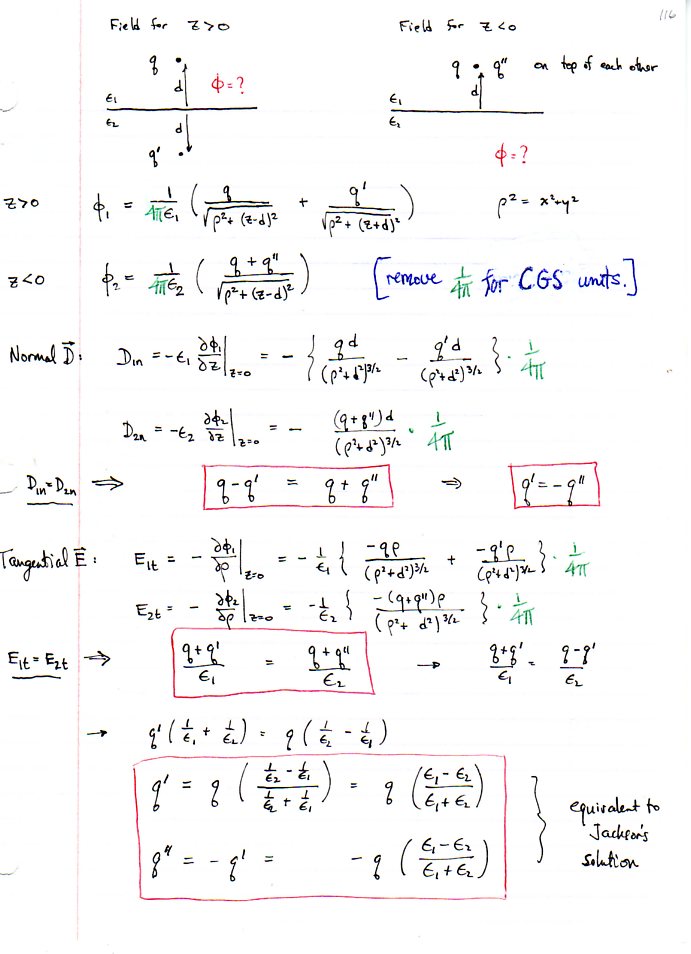 116
Field for z>0
Field for z<0
q
d
ϕ=?
ϵ₁
ϵ₂
d
q'
q q" on top of each other
d
ϵ₁
ϵ₂
ϕ=?
z>0 ϕ₁ = 1/4πϵ₁ ( q/√(ρ²+(z-d)²) + q'/√(ρ²+(z+d)²) ) ρ² = x²+y²
z<0 ϕ₂ = 1/4πϵ₂ ( q+q"/√(ρ²+(z-d)²) ) [remove 1/4π for CGS units.]
Normal D⃗: D₁ₙ = -ϵ₁ ∂ϕ₁/∂z |z=0 = - { qd/(ρ²+d²)^3/2 - q'd/(ρ²+d²)^3/2 } · 1/4π
D₂ₙ = -ϵ₂ ∂ϕ₂/∂z |z=0 = - (q+q")d/(ρ²+d²)^3/2 · 1/4π
D₁ₙ=D₂ₙ ⟹ q-q' = q+q" ⟹ q'=-q"
Tangential E⃗: E₁t = - ∂ϕ₁/∂ρ |z=0 = - 1/ϵ₁ { -qρ/(ρ²+d²)^3/2 + -q'ρ/(ρ²+d²)^3/2 } · 1/4π
E₂t = - ∂ϕ₂/∂ρ |z=0 = - 1/ϵ₂ { -(q+q")ρ/(ρ²+d²)^3/2 } · 1/4π
E₁t=E₂t ⟹ q+q'/ϵ₁ = q+q"/ϵ₂ → q+q'/ϵ₁ = q-q'/ϵ₂
→ q'(1/ϵ₁ + 1/ϵ₂) = q(1/ϵ₂ - 1/ϵ₁)
q' = q ( (1/ϵ₂ - 1/ϵ₁)/(1/ϵ₂ + 1/ϵ₁) ) = q (ϵ₁-ϵ₂/ϵ₁+ϵ₂)
q" = -q' = -q (ϵ₁-ϵ₂/ϵ₁+ϵ₂)
} equivalent to
Jackson's
solution